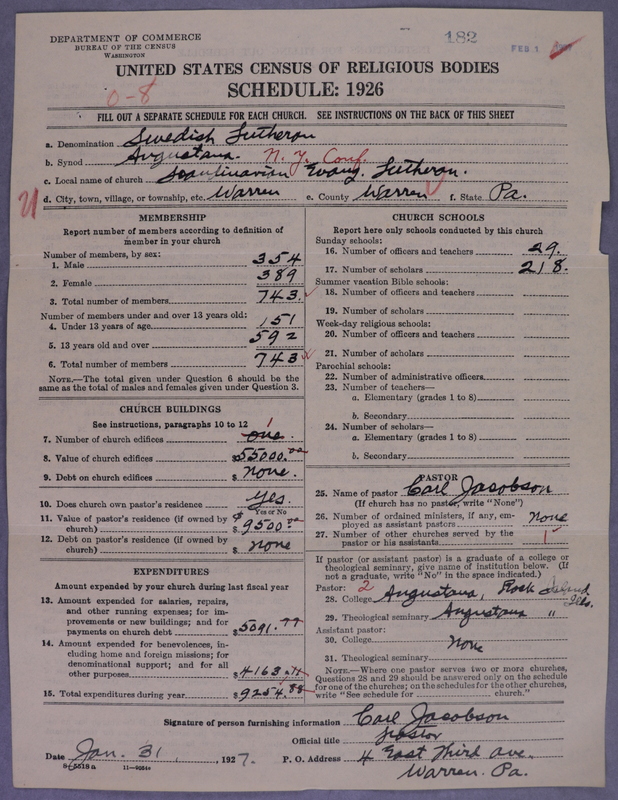 DEPARTMENT OF COMMERCE
BUREAU OF THE CENSUS
WASHINGTON
182
FEB 1
UNITED STATES CENSUS OF RELIGIOUS BODIES
SCHEDULE: 1926
0-8
FILL OUT A SEPARATE SCHEDULE FOR EACH CHURCH. SEE INSTRUCTIONS ON THE BACK OF THIS SHEET
a. Denomination Swedish Lutheran
b. Synod Augustana. N. Y. Conf.
c. Local name of church Scandinavian Evang. Lutheran.
d. City, town, village, or township, etc. Warren e. County Warren f. State Pa.
MEMBERSHIP
Report number of members according to definition of member in your church
Number of members, by sex:
1. Male 354
2. Female 389
3. Total number of members 743
Number of members under and over 13 years old:
4. Under 13 years of age 151
5. 13 years old and over 592
6. Total number of members 743
NOTE.—The total given under Question 6 should be the same as the total of males and females given under Question 3.
CHURCH BUILDINGS
See instructions, paragraphs 10 to 12
7. Number of church edifices one. 1
8. Value of church edifices $55000.00
9. Debt on church edifices $ none.
10. Does church own pastor's residence Yes
Yes or No
11. Value of pastor's residence (if owned by church) $ 9500 00
12. Debt on pastor's residence (if owned by church) $ none
EXPENDITURES
Amount expended by your church during last fiscal year
13. Amount expended for salaries, repairs, and other running expenses; for improvements or new buildings; and for payments on church debt $5091.77
14. Amount expended for benevolences, including home and foreign missions; for denominational support; and for all other purposes $4163.11
15. Total expenditures during year $9254.88
CHURCH SCHOOLS
Report here only schools conducted by this church
Sunday schools:
16. Number of officers and teachers 29.
17. Number of scholars 218.
Summer vacation Bible schools:
18. Number of officers and teachers
19. Number of scholars
Week-day religious schools:
20. Number of officers and teachers
21. Number of scholars
Parochial schools:
22. Number of administrative officers
23. Number of teachers—
a. Elementary (grades 1 to 8)
b. Secondary
24. Number of scholars—
a. Elementary (grades 1 to 8)
b. Secondary
PASTOR
25. Name of pastor Carl Jacobson
(If church has no pastor, write "None")
26. Number of ordained ministers, if any, employed as assistant pastors none
27. Number of other churches served by the pastor or his assistants 1
If pastor (or assistant pastor) is a graduate of a college or theological seminary, give name of institution below. (If not a graduate, write "No" in the space indicated.)
Pastor: 2
28. College Augustana, Rock Island Ills.
29. Theological seminary Augustana "
Assistant pastor:
30. College None
31. Theological seminary
NOTE.—Where one pastor serves two or more churches, Questions 28 and 29 should be answered only on the schedule for one of the churches; on the schedules for the other churches, write "See schedule for church."
Signature of person furnishing information Carl Jacobson
Official title Pastor
Date Jan. 31, 1927. P. O. Address 4 East Third Ave.
Warren. Pa.